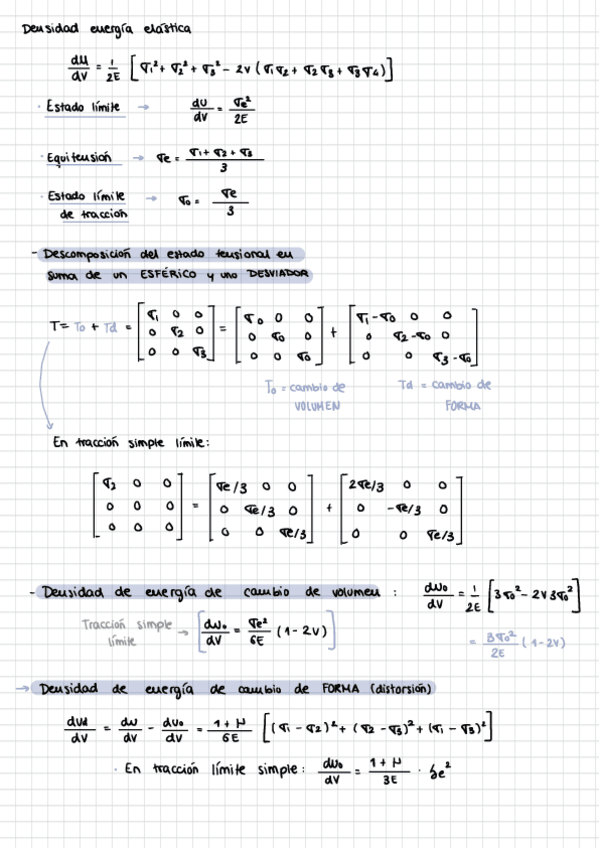 Densidad energía elástica
dU/dV = 1/2E [σ1² + σ2² + σ3² - 2ν (σ1σ2 + σ2σ3 + σ3σ1)]
· Estado límite → dU/dV = σe²/2E
· Equitensión → σe = (σ1 + σ2 + σ3)/3
· Estado límite de tracción → σ0 = σe/3
- Descomposición del estado tensional en
suma de un ESFÉRICO y uno DESVIADOR
T = To + Td = [σ1 0 0; 0 σ2 0; 0 0 σ3] = [σ0 0 0; 0 σ0 0; 0 0 σ0] + [σ1-σ0 0 0; 0 σ2-σ0 0; 0 0 σ3-σ0]
To = cambio de VOLUMEN
Td = cambio de FORMA
En tracción simple límite:
[σ2 0 0; 0 0 0; 0 0 0] = [σe/3 0 0; 0 σe/3 0; 0 0 σe/3] + [2σe/3 0 0; 0 -σe/3 0; 0 0 σe/3]
- Densidad de energía de cambio de volumen : dUo/dV = 1/2E [3σ0² - 2ν3σ0²]
= 3σ0²/2E (1-2ν)
Tracción simple límite → [dUo/dV = σe²/6E (1-2ν)]
→ Densidad de energía de cambio de FORMA (distorsión)
dUd/dV = dU/dV - dUo/dV = (1+μ)/6E [(σ1 - σ2)² + (σ2 - σ3)² + (σ1 - σ3)²]
· En tracción límite simple: dUo/dV = (1+μ)/3E · σe²